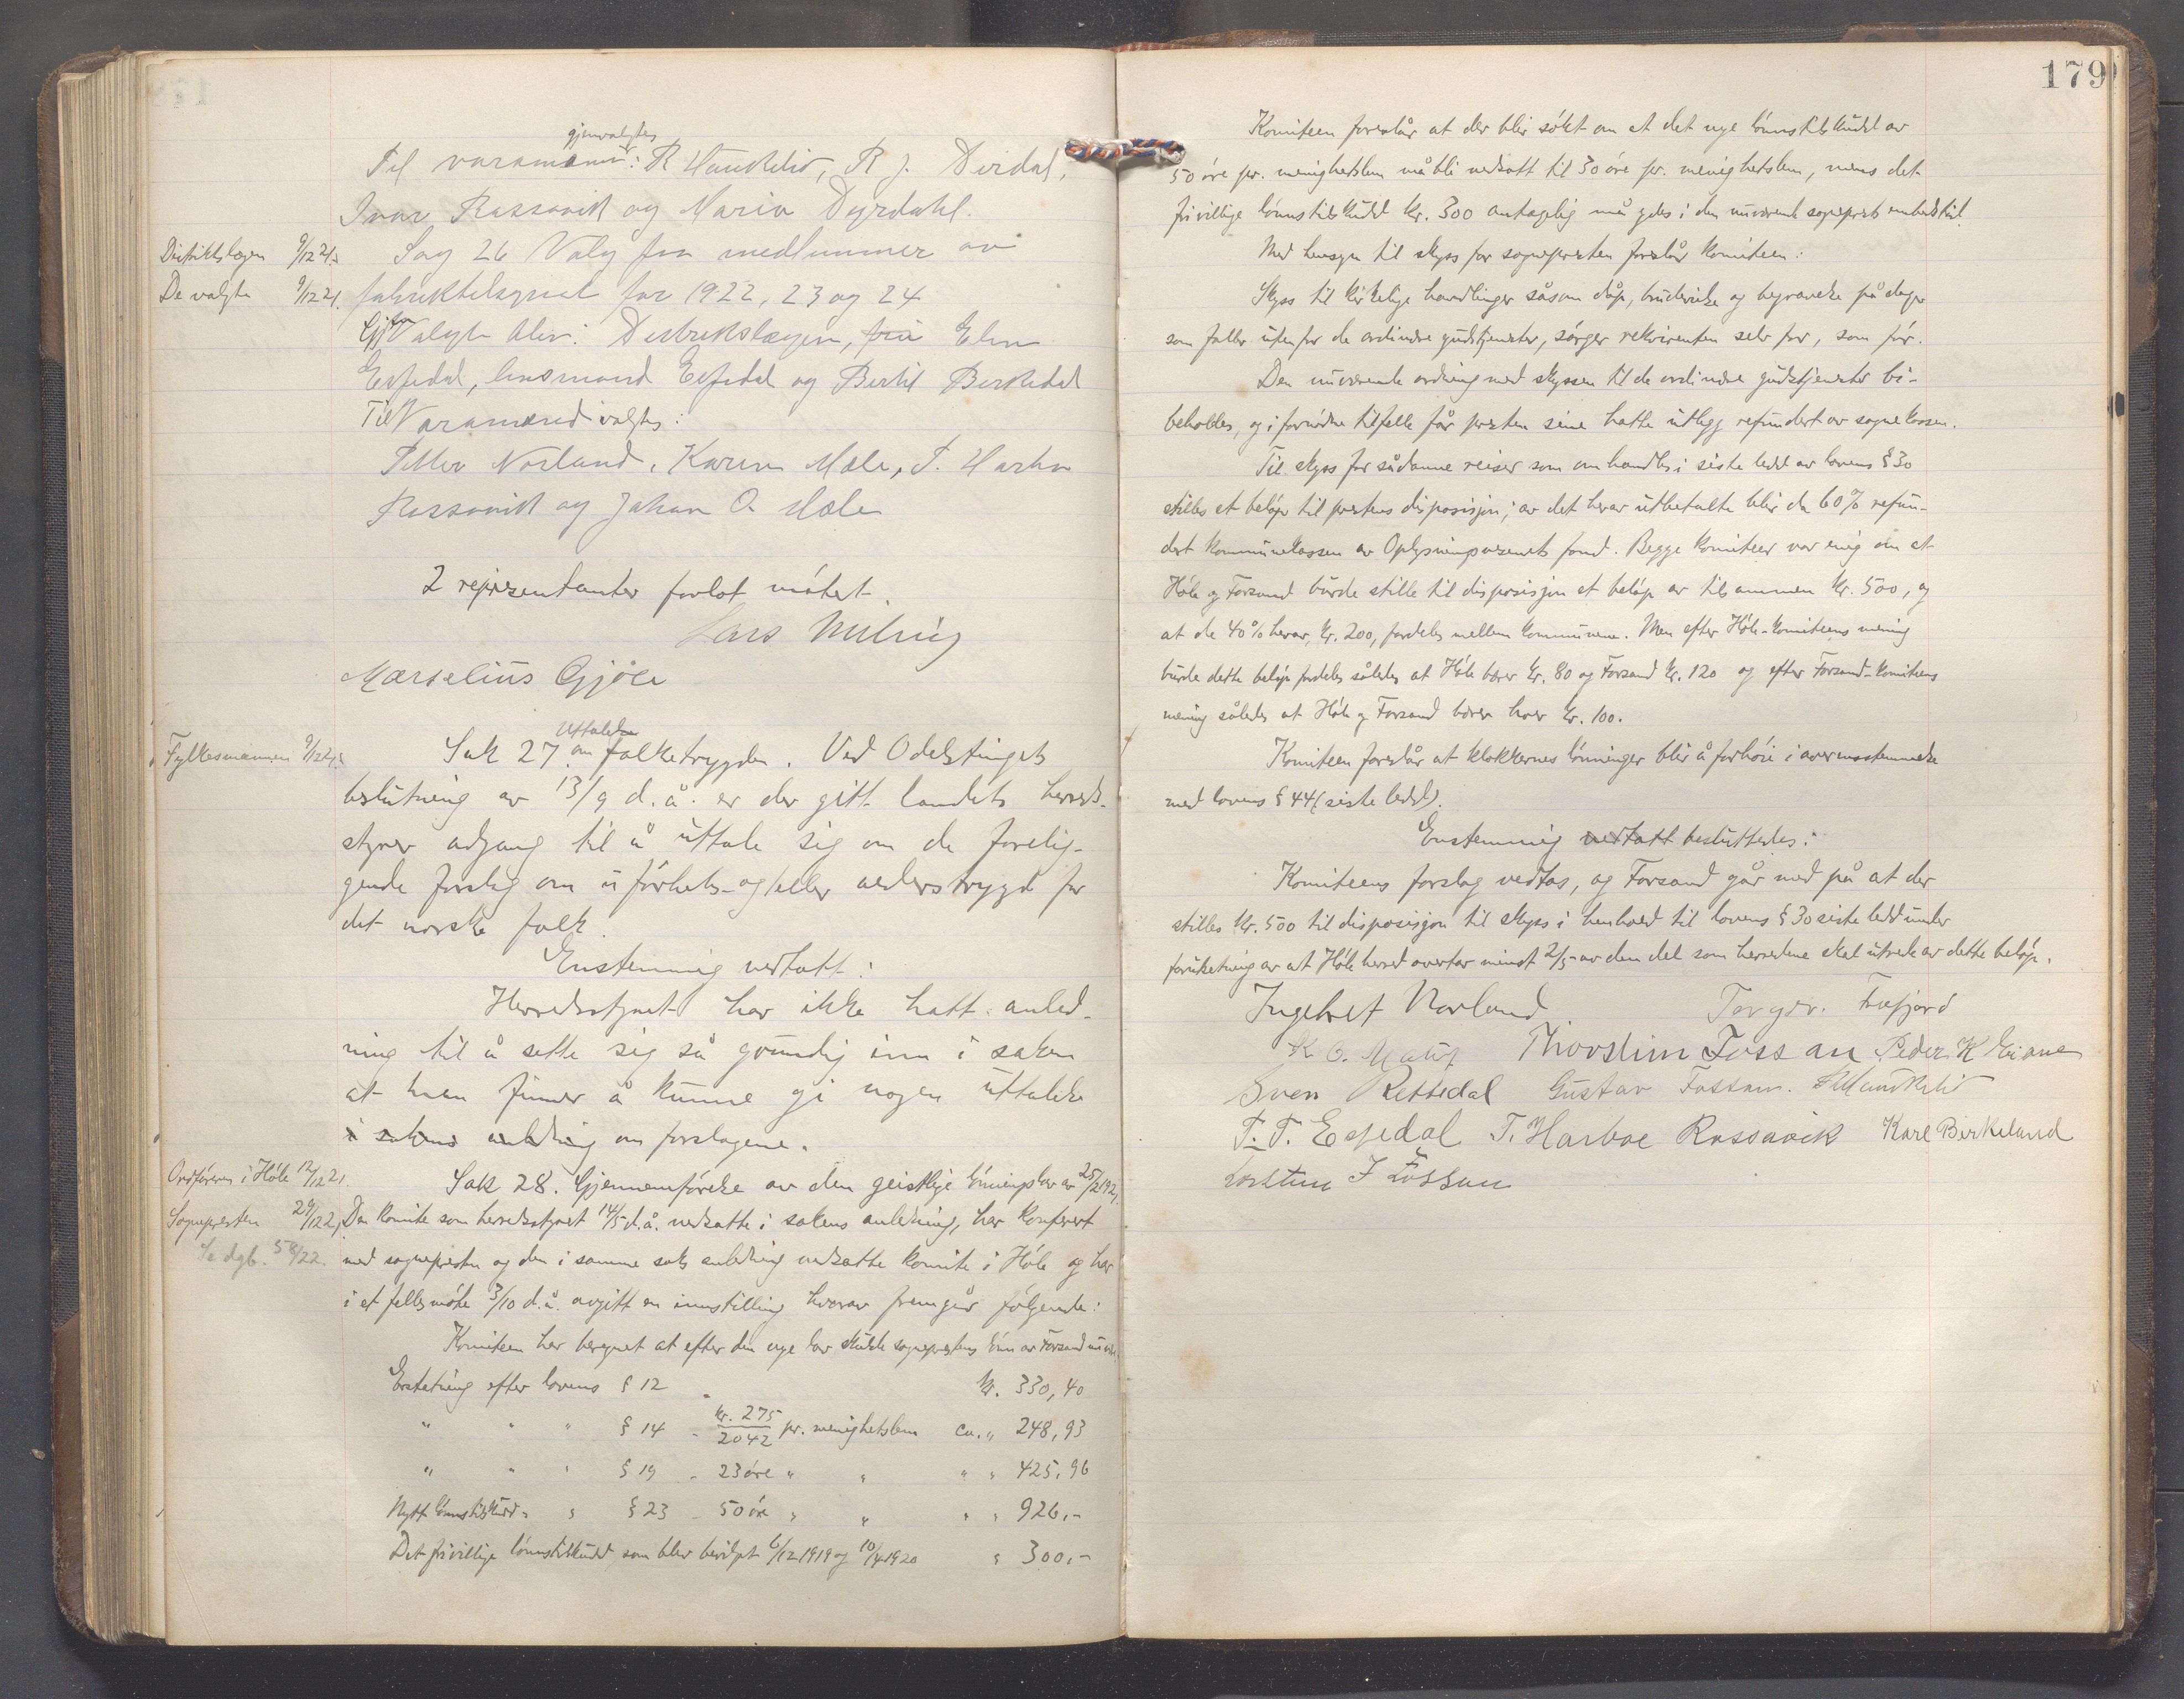 gjenvalgtes
Til varamænn: R Haukelid, R. J. Dirdal,
Ivar Rossavik og Marin Dyrdahl.
Distriktslægen 9/12 21. Sag 26 Valg paa medlemmer av
De valgte 9/12 21. fabriktilsynet for 1922, 23 og 24
Valgte blev: Distrikslægen, fru Elen
Espedal, lensmand Espedal og Bertil Berkedal
Til Varamænd valgtes:
Petter Norland, Karen Mæle, T. Harbo
Rossavik og Johan O. Mæle
2 representanter forlot møtet.
Lars
Marselius Gjøse
Uttalelse
Fylkesmannen 9/12 21. Sak 27. om folketrygden. Ved Odelstingets
beslutning av 13/9 d.å. er der gitt landets herreds-
styrer adgang til å uttale sig om de forelig-
gende forslag om uførhets- og/eller alderstrygd for
det norske folk.
Enstemmig vedtatt:
Herredsstyret har ikke hatt anled-
ning til å sette sig så grundig inn i saken
at man finner å kunne gi nogen uttalelse
i sakens anledning om forslagene.
Ordføreren i Høle 12/12 21. Sak 28. Gjennemførelse av den geistlige lønningslov av 25/2 1921.
Sognepresten 29/12 21. Den komite som herredsstyret 14/5 d.å. nedsatte i sakens anledning, har konferert
Se dgb. 58/22. med sognepresten og den i samme saks anledning nedsatte komite i Høle og har
i et fellesmøte 3/10 d.å. avgitt en innstilling hvorav fremgår følgende:
Komiteen har beregnet at efter den nye lov skulde sogneprestens lønn av Forsand
Erstatning efter lovens § 12 kr. 330,40
" " " § 14 - kr. 275/2042 pr. menighetslem ca. " 248,93
" " " § 19 - 23 øre " " " " 425,96
Nytt lønnstilskudd " " § 23 - 50 øre " " " " 926,-
Det frivillige lønnstilskudd som blev bevilget 6/12 1919 og 10/4 1920 " 300,-
179
Komiteen foreslår at der blir søkt om at det nye lønnstilskudd av
50 øre pr. menighetslem må bli nedsatt til 30 øre pr. menighetslem, mens det
frivillige lønnstilskudd kr. 300 antagelig må ydes i den nuværende sogneprests embedstid.
Med hensyn til skyss for sognepresten foreslår komiteen:
Skyss til kirkelige handlinger såsom dåp, brudevielse og begravelse på dager
som faller utenfor de ordinære gudstjenester, sørger rekvirenten selv for, som før.
Den nuværende ordning med skyssen til de ordinære gudstjenester bi-
beholdes, og i fornødne tilfelle får presten sine hatte utlegg refundert av sognekassen.
Til skyss for sådanne reiser som omhandles i siste ledd av lovens § 30
stilles et beløp til prestens disposisjon; av det herav utbetalte blir da 60% refun-
dert kommunekassen av Oplysningsvesenets fond. Begge komiteer var enig om at
Høle og Forsand burde stille til disposisjon et beløp av tilsammen kr. 500, og
at de 40% herav, kr. 200, fordeles mellem kommunene. Men efter Høle-komiteens mening
burde dette beløp fordeles således at Høle bærer kr. 80 og Forsand kr. 120 og efter Forsand-komiteens
mening således at Høle og Forsand bærer hver kr. 100.
Komiteen foreslår at klokkernes lønninger blir å forhøie i overensstemmelse
med lovens § 44 (siste ledd).
Enstemmig vedtatt besluttedes:
Komiteens forslag vedtas, og Forsand går med på at der
stilles kr. 500 til disposisjon til skyss i henhold til lovens § 30 siste ledd under
forutsetning av at Høle herred overtar minst 2/5 av den del som herredene skal utrede av dette beløp.
Ingebret Norland. Torger. Træfjord
K. O. Thorstein Fossan Peder K Eiane
Sven Rettedal Gustav Fossan. R Haukelid
T. T. Espedal T. Harboe Rossavik Karl Birkeland
Torstein J Fossan